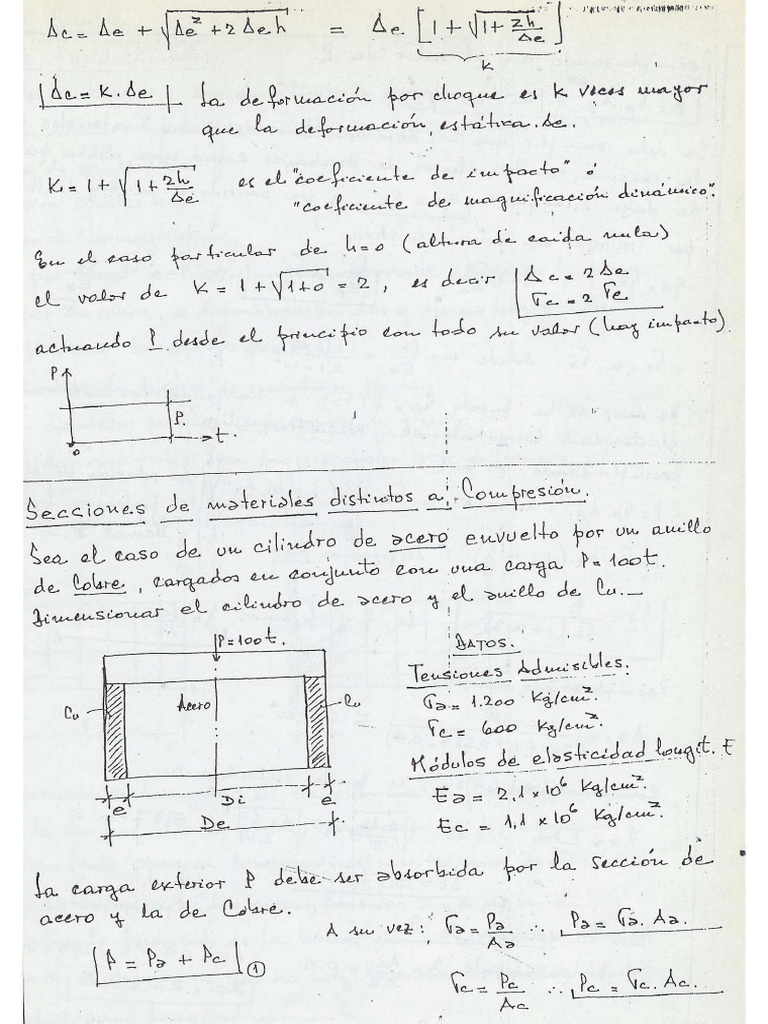 Δc = Δe + √(Δe² + 2 Δe h) = Δe. [1 + √(1 + 2h/Δe)]
K
Δc = K. Δe La deformación por choque es K veces mayor
que la deformación estática Δe.
K = 1 + √(1 + 2h/Δe) es el "coeficiente de impacto" ó
"coeficiente de magnificación dinámico".
En el caso particular de h=0 (altura de caída nula)
el valor de K = 1 + √(1+0) = 2, es decir Δc = 2 Δe
σc = 2 σe
actuando P desde el principio con todo su valor (hay impacto).
P
P.
t.
0
Secciones de materiales distintos a Compresión.
Sea el caso de un cilindro de acero envuelto por un anillo
de Cobre, cargados en conjunto con una carga P = 100t.
Dimensionar el cilindro de acero y el anillo de Cu.
P = 100t.
Cu
Acero
Cu
e
Di
e
De
DATOS.
Tensiones Admisibles.
σa = 1.200 Kg/cm².
σc = 600 Kg/cm².
Módulos de elasticidad longit. E
Ea = 2,1 x 10⁶ Kg/cm².
Ec = 1,1 x 10⁶ Kg/cm².
La carga exterior P debe ser absorbida por la sección de
acero y la de Cobre.
A su vez: σa = Pa/Aa ∴ Pa = σa. Aa.
P = Pa + Pc ①
σc = Pc/Ac ∴ Pc = σc. Ac.